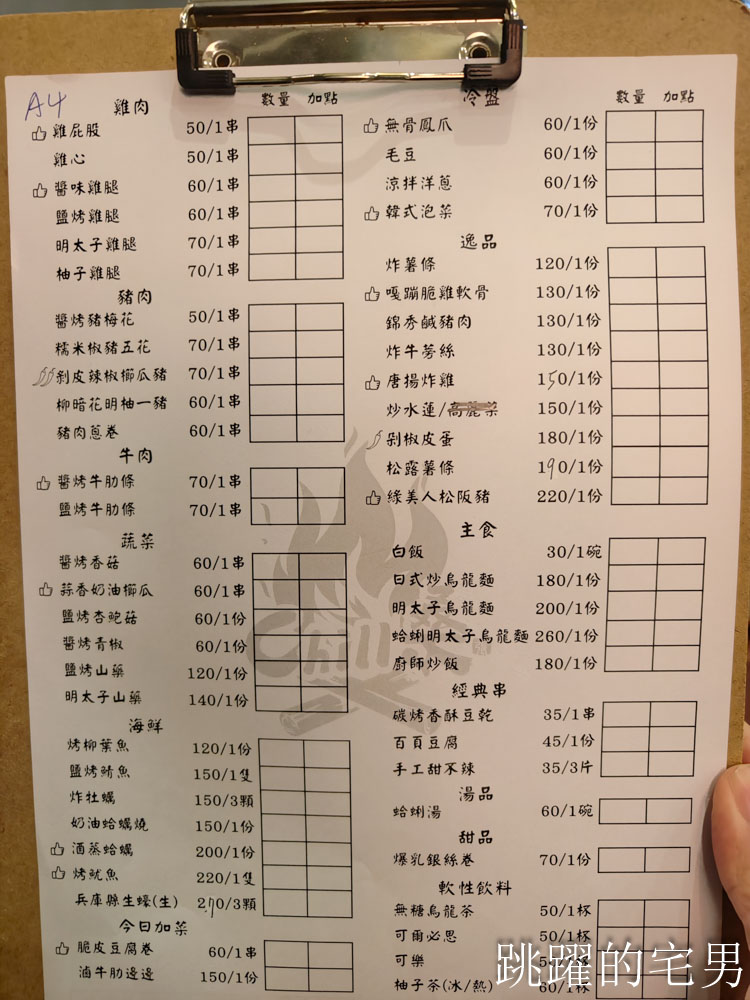 A4
雞肉 數量 加點
雞屁股 50/1串
雞心 50/1串
醬味雞腿 60/1串
鹽烤雞腿 60/1串
明太子雞腿 70/1串
柚子雞腿 70/1串
豬肉
醬烤豬梅花 50/1串
糯米椒豬五花 70/1串
剝皮辣椒櫛瓜豬 70/1串
柳暗花明柚一豬 60/1串
豬肉蔥卷 60/1串
牛肉
醬烤牛肋條 70/1串
鹽烤牛肋條 70/1串
蔬菜
醬烤香菇 60/1串
蒜香奶油櫛瓜 60/1串
鹽烤杏鮑菇 60/1份
醬烤青椒 60/1份
鹽烤山藥 120/1份
明太子山藥 140/1份
海鮮
烤柳葉魚 120/1份
鹽烤鯖魚 150/1隻
炸牡蠣 150/3顆
奶油蛤蠣燒 150/1份
酒蒸蛤蠣 200/1份
烤魷魚 220/1隻
兵庫縣生蠔(生) 270/3顆
今日加菜
脆皮豆腐卷 60/1串
滷牛肋邊邊 150/1份
冷盤 數量 加點
無骨鳳爪 60/1份
毛豆 60/1份
涼拌洋蔥 60/1份
韓式泡菜 70/1份
逸品
炸薯條 120/1份
嘎蹦脆雞軟骨 130/1份
錦秀鹹豬肉 130/1份
炸牛蒡絲 130/1份
唐揚炸雞 150/1份
炒水蓮/高麗菜 150/1份
剁椒皮蛋 180/1份
松露薯條 190/1份
綠美人松阪豬 220/1份
主食
白飯 30/1碗
日式炒烏龍麵 180/1份
明太子烏龍麵 200/1份
蛤蜊明太子烏龍麵 260/1份
廚師炒飯 180/1份
經典串
碳烤香酥豆乾 35/1串
百頁豆腐 45/1份
手工甜不辣 35/3片
湯品
蛤蜊湯 60/1碗
甜品
爆乳銀絲卷 70/1份
軟性飲料
無糖烏龍茶 50/1杯
可爾必思 50/1杯
可樂
柚子茶(冰/熱) 60/1杯
Chill
跳躍的宅男